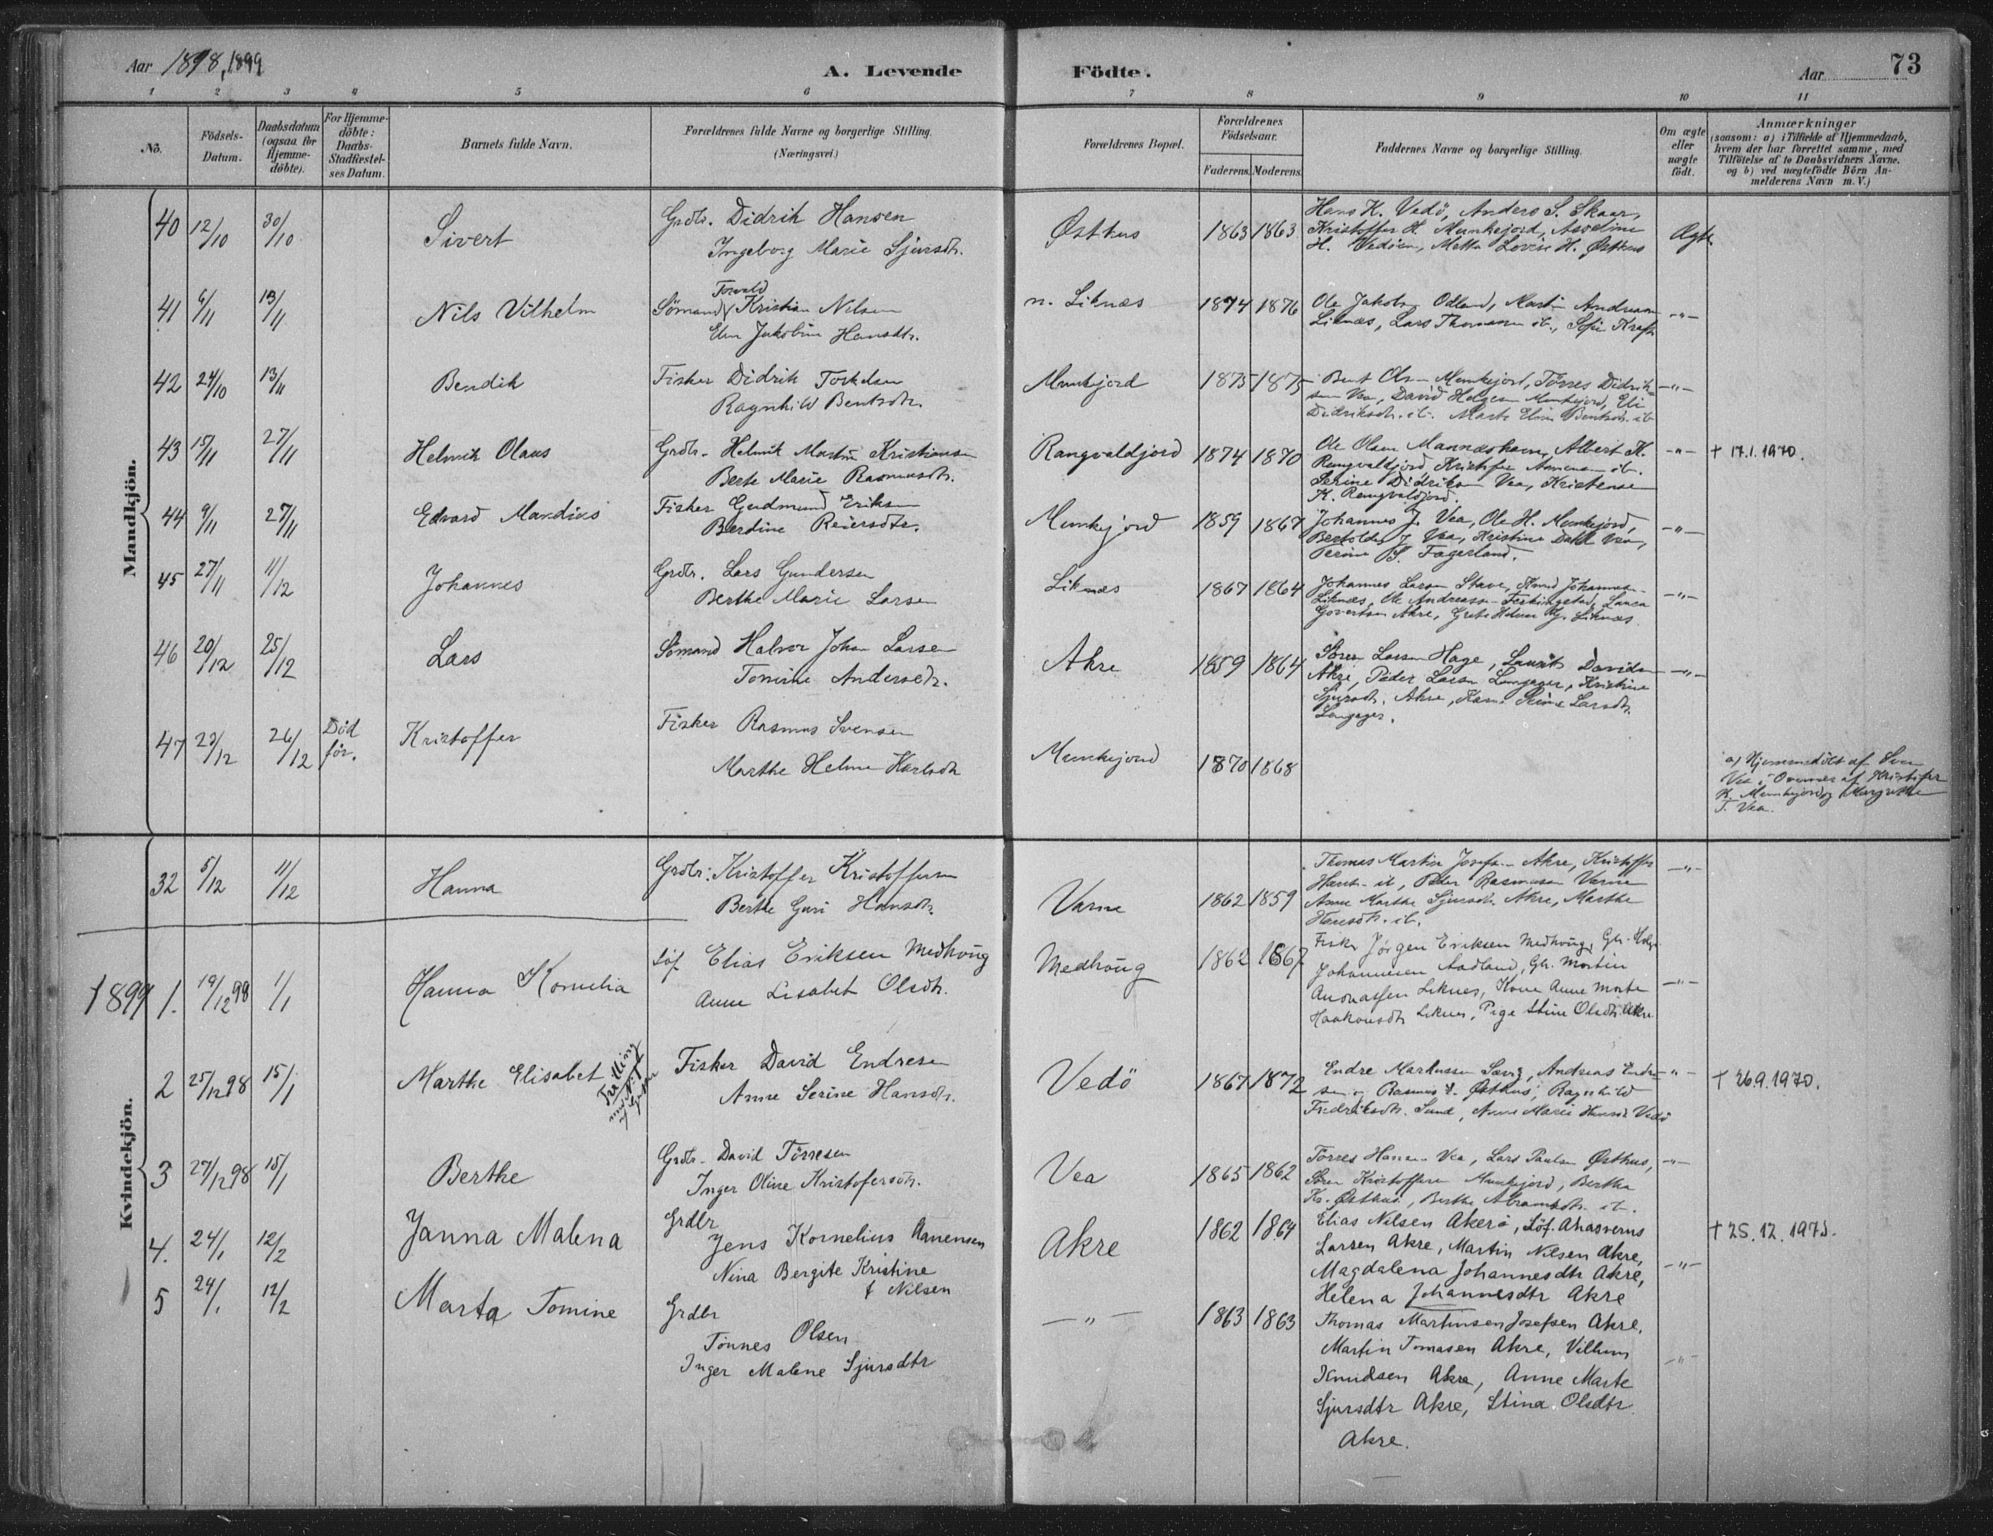 Aar 1898, 1899
A. Levende Födte.
Aar 73
1 2 3 4 5 6 7 8 9 10 11
No. Födsels-Datum. Daabsdatum (ogsaa for Hjemme-döbte). For Hjemme-döbte: Daabs-Stadfæstel-ses Datum. Barnets fulde Navn. Forældrenes fulde Navne og borgerlige Stilling. (Næringsvei.) Forældrenes Bopæl. Forældrenes Födselsaar. Faderens. Moderens. Faddernes Navne og borgerlige Stilling. Om ægte eller uægte födt. Anmærkninger (saasom: a) i Tilfælde af Hjemmedaab, hvem der har forrettet samme, med Tilföielse af to Daabsvidners Navne. og b) ved uægtefödte Börn An-melderens Navn m. V.)
Mandkjön.
40 12/10 30/10 Sivert Grdbr. Didrik Hansen
Ingeborg Marie Sjursdtr.
Østhus 1863 1863 Hans K. Vedö, Anders S. Skaar,
Kristoffer H. Munkejord,
H. Vedöen, Mette Lovise H. Østhus
Ægte
41 6/11 13/11 Nils Vilhelm Sömand Torvald Kristian Nilsen
Elen Jakobine Hansdtr.
n. Liknæs 1874 1876 Ole Jakobs. Odland, Martin Andreasen
Liknæs, Lars Thomasen ib.,
-"-
42 24/10 13/11 Bendik Fisker Didrik Torkelsen
Ragnhild Bentsdtr.
Munkejord 1875 1875 Bent Olsen Munkejord, Törres Didrik-
sen Vea, David Helgesen Munkejord, Eli
Didriksdtr. ib. Marte Elin Bentsdtr. ib
-"-
43 15/11 27/11 Helmik Olaus Grdbr. Helmik Martin Kristiansen
Berte Marie Rasmusdtr.
Rangvaldjord 1874 1870 Ole Olsen Mannæshavn, Albert K.
Rengvaldjord, Kristofer ib.
Serine Didriksen Vea, Kristense
K. Rengvaldjord.
-"- † 17.1.1970.
44 9/11 27/11 Edvard Mandius Fisker Gudmund Eriksen
Berdine Reiersdtr.
Munkejord 1859 1867 Johannes J. Vea, Ole H. Munkejord,
Bertolder J Vea, Kristine Vea,
Serine Fagerland.
-"-
45 27/11 11/12 Johannes Grdbr. Lars Gundersen
Berthe Marie Larsen
Liknæs 1867 1864 Johannes Larsen Stave, Johannesen
Liknæs, Ole Andreassen Ferkingstad,
Govertsen Akre, Grete Helene Liknæs.
-"-
46 20/12 25/12 Lars Sömand Halvor Johan Larsen
Tomine Andersdtr.
Akre 1859 1864 Sören Larsen Hage, Laurits Davidsen
Akre, Peder Larsen Langager, Kristine
Sjursdtr. Akre, Larsdtr.
Langager.
-"-
47 23/12 26/12 Död för. Kristoffer Fisker Rasmus Svensen
Marthe Helene Karlsdtr
Munkejord 1870 1868
a) Hjemmedöbt af Sven
Vea, i Overvær af Kristofer
K. Munkejord og Margrethe
T. Vea.
Kvindekjön.
32 5/12 11/12 Hanna Grdbr. Kristoffer Kristoffersen
Berthe Guri Hansdtr.
Varne 1862 1859 Thomas Martin Josefsen Akre, Kristoffer
Hansen ib, Peder Rasmusen Varne
Anne Marthe Sjursdtr. Akre, Marthe
Hansdtr. ib.
-"-
1899 1. 19/12 98 1/1 Hanna Kornelia Söf. Elias Eriksen Medhoug
Anne Lisabet Olsdtr.
Medhoug 1862 1867 Fisk. Jörgen Eriksen Medhoug, Gbr. Helge
Johannesen Aadland, Gbr. Martin
Andreassen Liknes, Kone Anne Marte
Haakonsdtr Liknes, Pige Stine Olsdtr Akre
-"-
2 25/12 98 15/1 Marthe Elisabet Tvilling Fisker David Endresen
Anne Serine Hansdtr.
Vedö 1867 1872 Endre Markussen Sævig, Andreas Endre-
sen og Rasmus Østhus, Ragnhild
Fredriksdtr. Sund, Anne Marie Hansd Vedö
" † 26.9.1970.
3 27/12 98 15/1 Berthe Grdbr. David Törresen
Inger Oline Kristofersdtr.
Vea 1865 1862 Törres Hansen Vea, Lars Paulsen Østhus,
Sören Kristoffersen Munkejord, Bertha
Kr. Østhus, Berthe Abramsdtr. ib.
-"-
4. 24/1 12/2 Janna Malena Grdbr
Jens Kornelius Aanensen
Nina Bergite Kristine
f Nilsen
Akre 1862 1864 Elias Nilsen Akerö, Söf. Ahasverus
Larsen Akre, Martin Nilsen Akre,
Magdalena Johannesdtr Akre,
Helena Johannesdtr Akre
-"- † 25.12.1975.
5 24/1 12/2 Marta Tomine Grdbr
Tönnes Olsen
Inger Malene Sjursdtr
-"- 1863 1863 Thomas Martinsen Josefsen Akre,
Martin Tomasen Akre, Vilhelm
Knudsen Akre, Anne Marte
Sjursdtr Akre, Stina Olsdtr
Akre.
-"-